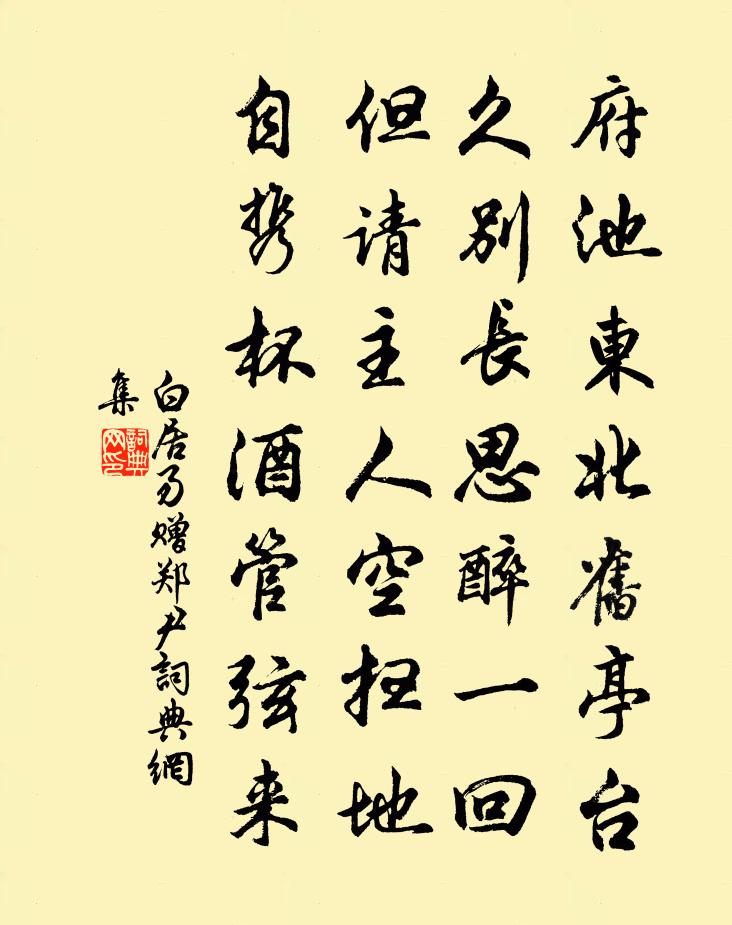 府池東北舊亭台
久别長思醉一回
但请主人空扫地
自携杯酒管弦来
白居易赠郑尹詞典網
集
詞典網印